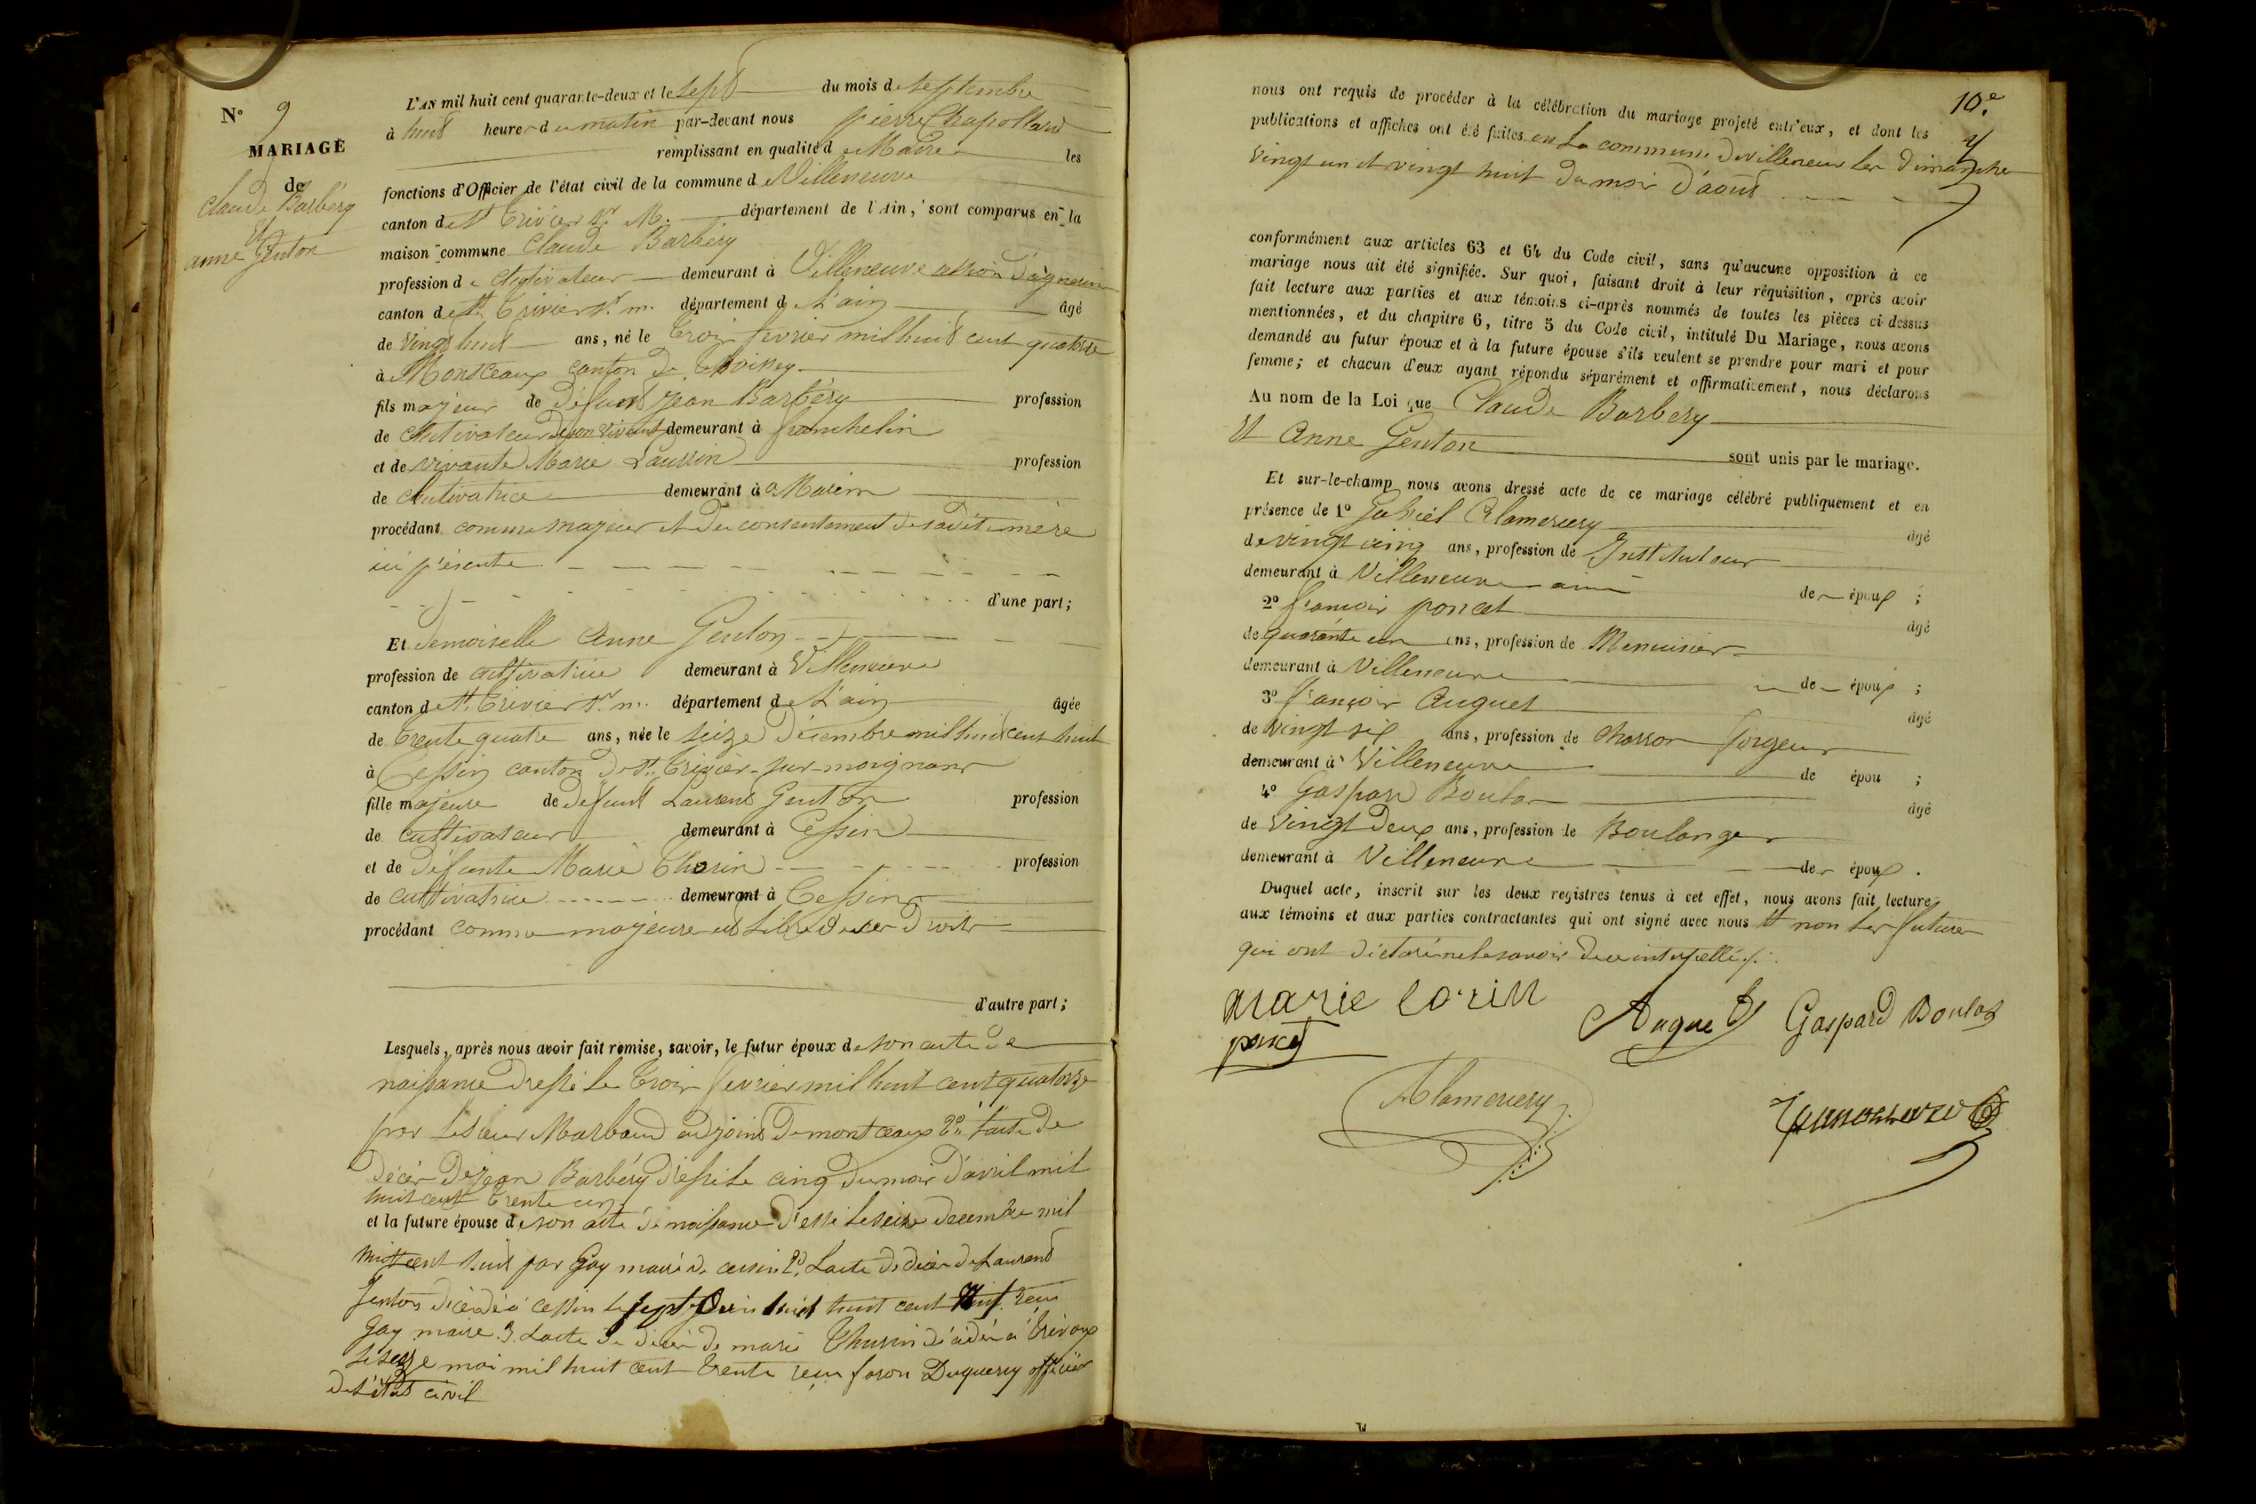 N° 9
MARIAGE
de
Claude Barbéry
et
anne Genton
L'AN mil huit cent quarante-deux et le sept du mois de septembre
à huit heures du matin par-devant nous pierre Chapolland
remplissant en qualité de Maire les
fonctions d'Officier de l'état civil de la commune de Villeneuve
canton de St Trivier sr M. département de l'Ain, sont comparus en la
maison commune Claude Barbéry
profession de Cultivateur demeurant à Villeneuve
canton de St Trivier sr m. département de L'ain âgé
de vingt huit ans, né le trois fevrier mil huit cent quatorze
à Montceaux canton de Thoissey
fils majeur de défunt Jean Barbéry profession
de Cultivateur de son vivant demeurant à francheleins
et de vivante Marie Laurin profession
de Cultivatrice demeurant à
procédant comme majeur et du consentement de sadite mère
ici présente
d'une part;
Et demoiselle Anne Genton
profession de cultivatrice demeurant à Villeneuve
canton de St. Trivier sr. m. département de L'ain âgée
de trente quatre ans, née le seize décembre mil huit cent huit
à Cessin canton de St. Trivier-sur-moignans
fille majeure de défunt Laurent Genton profession
de cultivateur demeurant à Cessin
et de défunte Marie Thurin profession
de cultivatrice demeurant à Cessin
procédant comme majeure et Libre de ses Droits
d'autre part;
Lesquels, après nous avoir fait remise, savoir, le futur époux de son acte de
naissance dressé le trois fevrier mil huit cent quatorze
par le sieur Marbaud adjoint de montceaux 2° l'acte de
décès de Jean Barbéry dressé le cinq du mois d'avril mil
huit cent trente un
et la future épouse de son acte de naissance dressé le seize decembre mil
huit cent huit par Gay maire de cessin 2° L'acte de décès de Laurent
Genton décédé à cessin le sept huit cent reçu
Gay maire 3. L'acte de décès de marie Thurin décédée à Trévoux
le seize mai mil huit cent trente reçu Duquerey officier
de l'état civil
10.e
nous ont requis de procéder à la célébration du mariage projeté entr'eux, et dont les
publications et affiches ont été faites en La commune de villeneuve les dimanche
vingt un et vingt huit du mois d'août
conformément aux articles 63 et 64 du Code civil, sans qu'aucune opposition à ce
mariage nous ait été signifiée. Sur quoi, faisant droit à leur réquisition, après avoir
fait lecture aux parties et aux témoins ci-après nommés de toutes les pièces ci-dessus
mentionnées, et du chapitre 6, titre 5 du Code civil, intitulé Du Mariage, nous avons
demandé au futur époux et à la future épouse s'ils veulent se prendre pour mari et pour
femme; et chacun d'eux ayant répondu séparément et affirmativement, nous déclarons
Au nom de la Loi que Claude Barbery
et Anne Genton sont unis par le mariage.
Et sur-le-champ nous avons dressé acte de ce mariage célébré publiquement et en
présence de 1° Gabriel Alamercery âgé
de vingt cinq ans, profession de Instituteur
demeurant à Villeneuve ami de époux ;
2° françois poncet âgé
de quarante un ans, profession de Menuisier
demeurant à Villeneuve de époux ;
3° françois Auguet âgé
de vingt six ans, profession de Charron forgeur
demeurant à Villeneuve de épou ;
4° Gaspard Boulon âgé
de vingt deux ans, profession de Boulanger
demeurant à Villeneuve de époux .
Duquel acte, inscrit sur les deux registres tenus à cet effet, nous avons fait lecture
aux témoins et aux parties contractantes qui ont signé avec nous et non les futurs
qui ont déclaré ne le savoir de ce interpellés.
Marie Lorin
poncet
Auguet
Gaspard Boulon
Alamercery